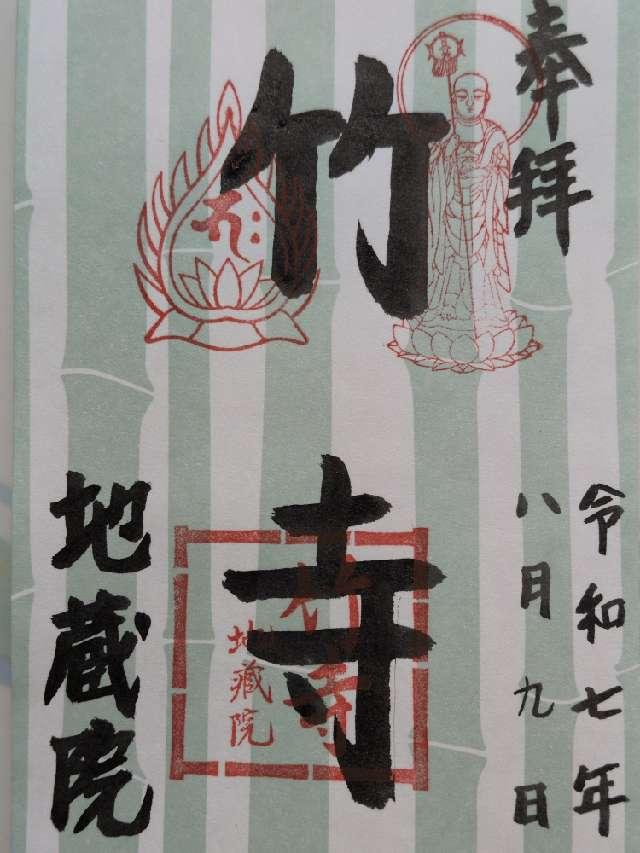 奉拝
令和七年
八月九日
竹寺
竹寺
地蔵院
地蔵院